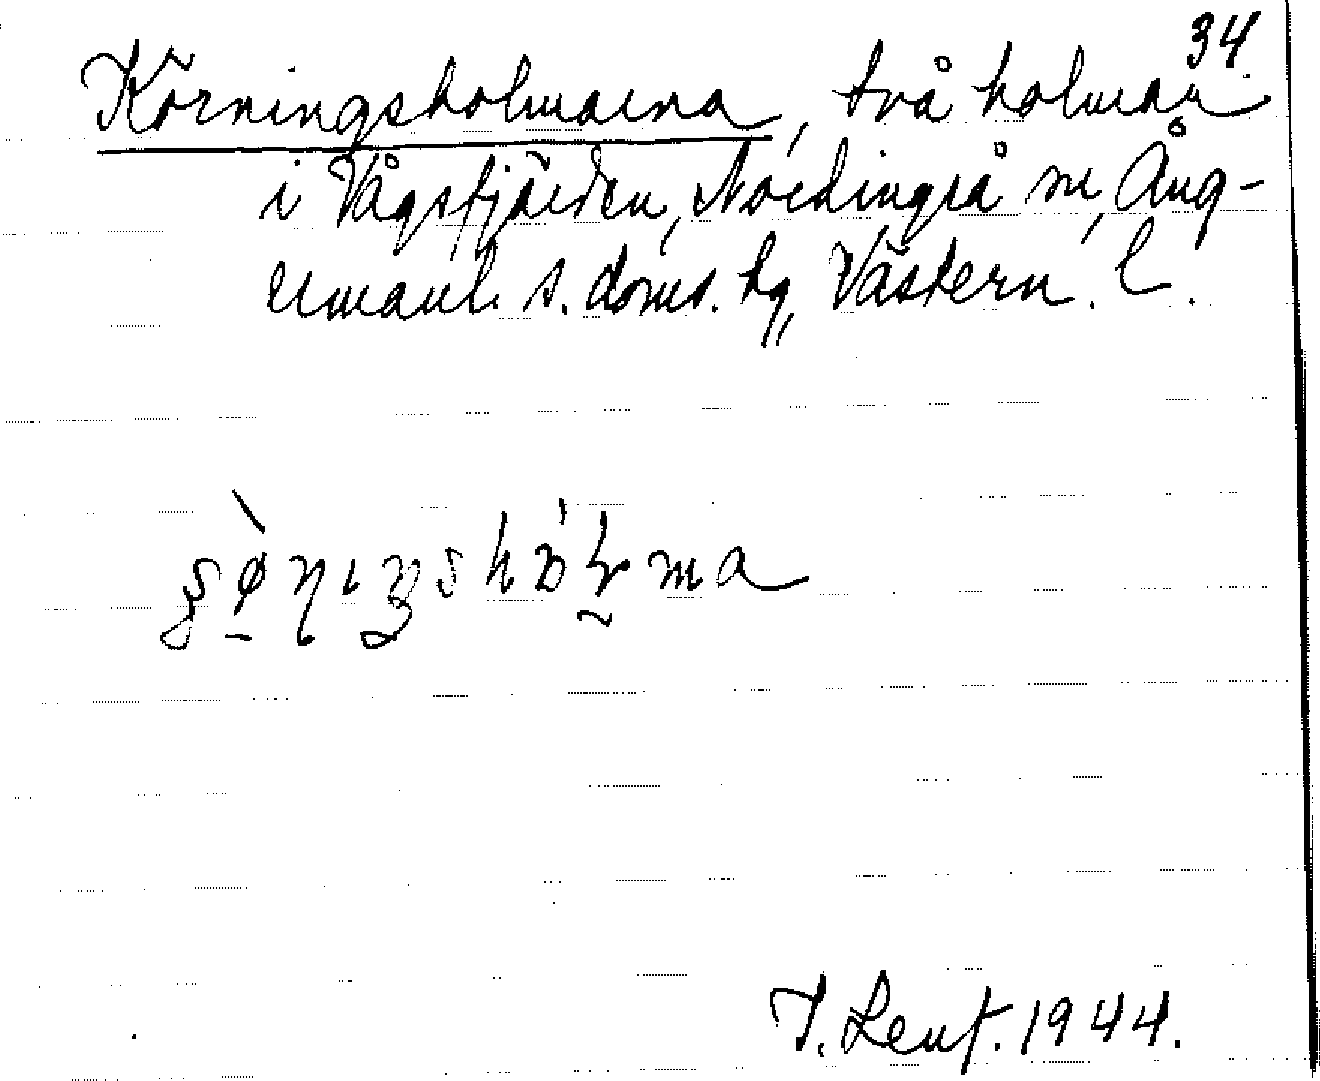 34
Körningsholmarna, två holmar
i Vågsfjärden, Nordingrå sn, Ång-
ermanl. s. doms. hg, Västern. l.
T. Lenf. 1944.